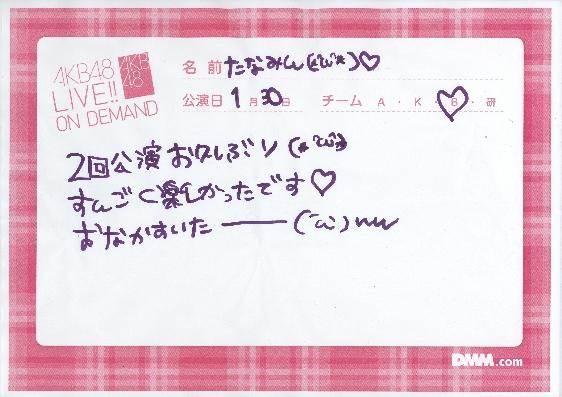 AKB48
LIVE!!
ON DEMAND
AKB
48
名前 たなみん(*´ω`*)♡
公演日 1月30日 チーム A・K・B・研
2回公演 お久しぶり (*´ω`*)
すんごく楽しかったです♡
おなかすいたーーー(´ω`)ww
DMM.com